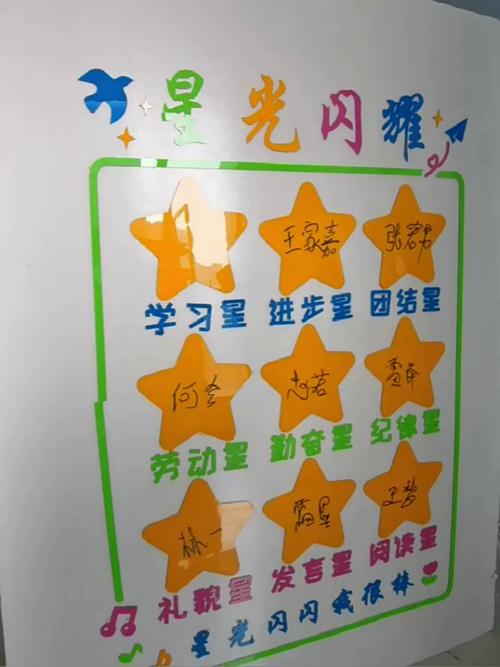 星光闪耀
王家嘉 张若男
学习星 进步星 团结星
何会
劳动星 勤奋星 纪律星
林一
礼貌星 发言星 阅读星
星光闪闪我很棒